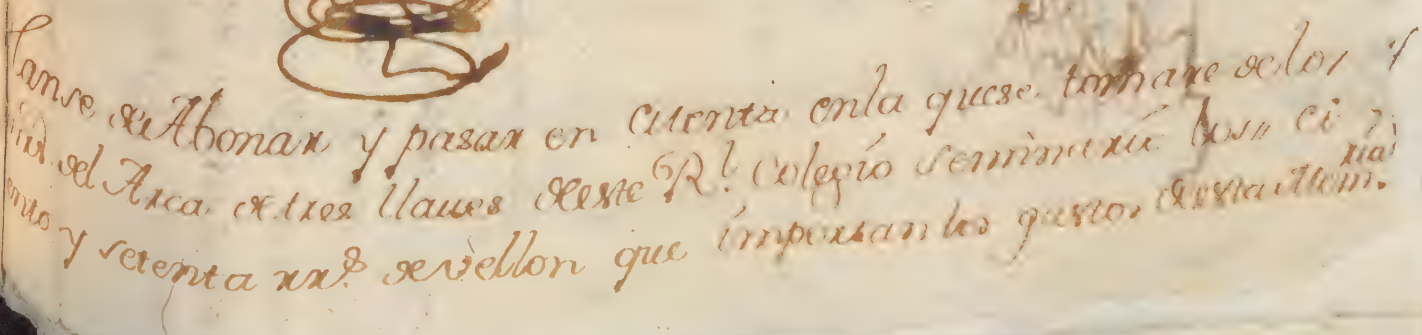 se de Abonar y pasar en cuenta en la que se tomare de los
del Arca de tres llaves de este Rl. Colegio Seminario los ci
ento y setenta rrs. de vellon que importan los gastos de esta Mem.ria